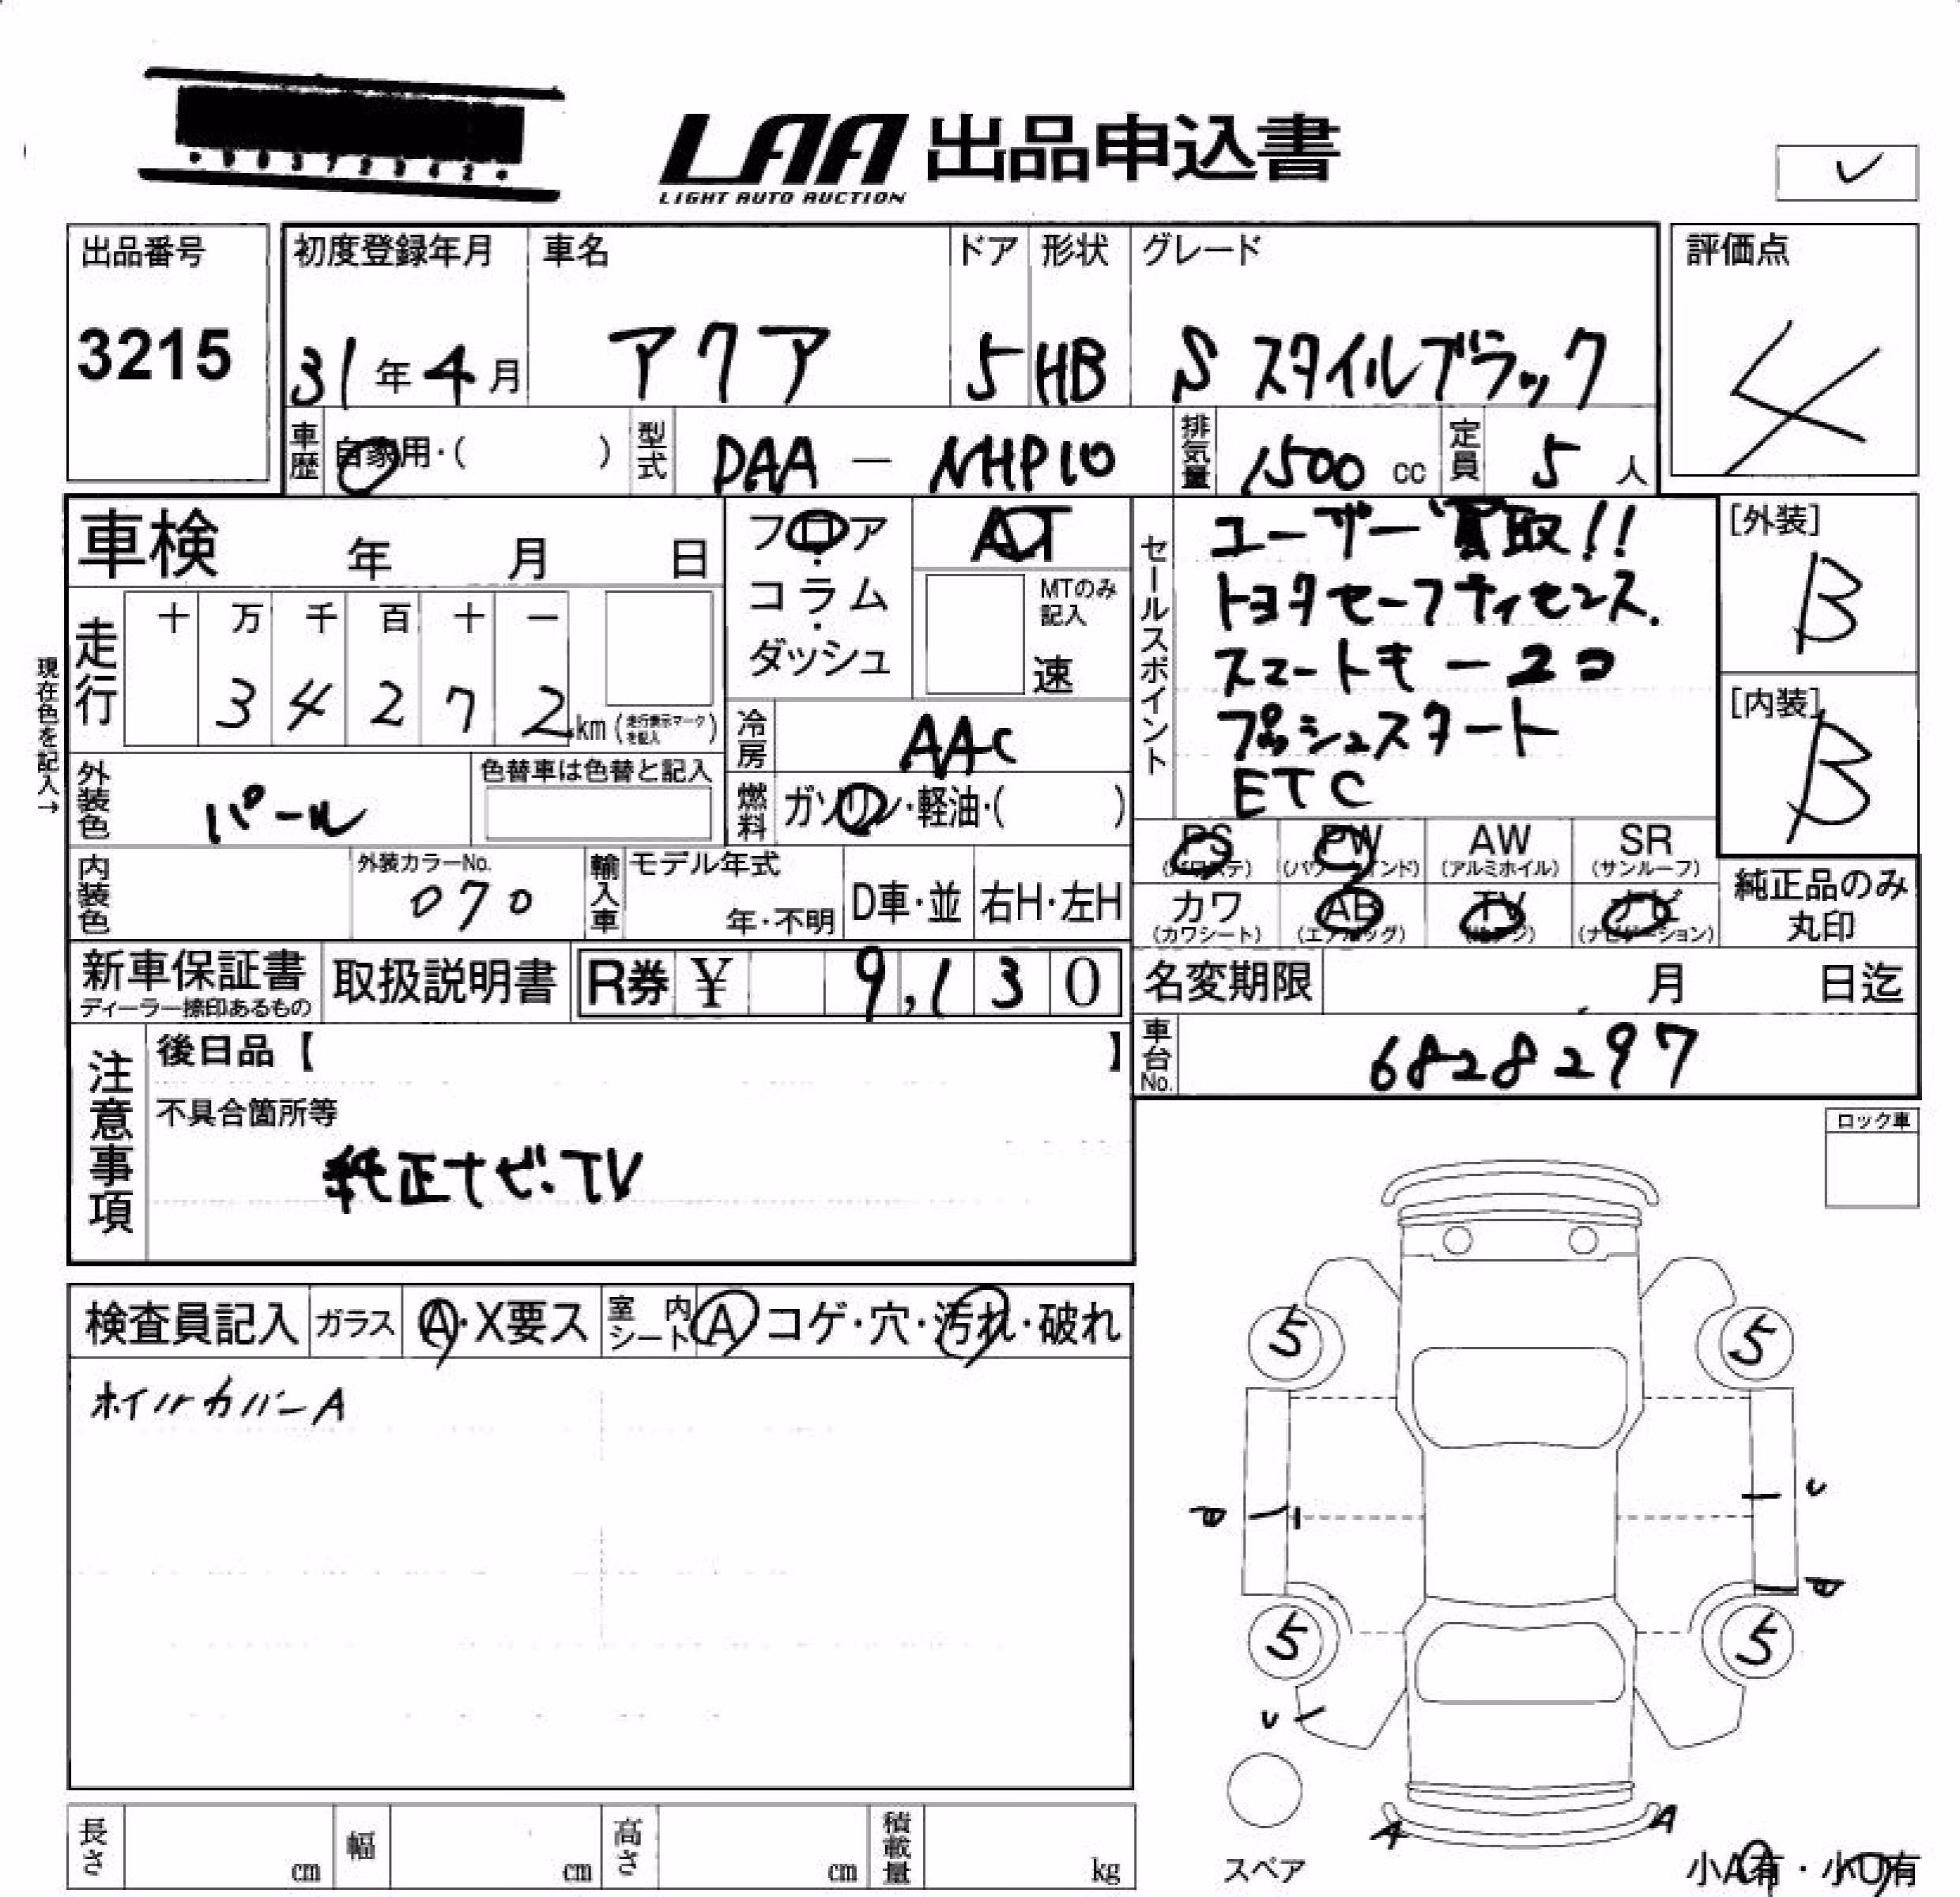 LAA 出品申込書
LIGHT AUTO AUCTION
出品番号
3215
初度登録年月
31年4月
車名
アクア
ドア
5
形状
HB
グレード
S スタイルブラック
評価点
4
車歴
自家用・( )
型式
DAA － NHP10
排気量
1500 cc
定員
5 人
車検 年 月 日
フロア・コラム・ダッシュ
AT
MTのみ記入
速
セールスポイント
ユーザー買取!!
トヨタセーフティセンス.
スマートキー2コ
プッシュスタート
ETC
[外装]
B
[内装]
B
現在色を記入→
走行
十 万 千 百 十 一
3 4 2 7 2 km (走行表示マークを記入)
冷房
AAC
外装色
パール
色替車は色替と記入
燃料
ガソリン・軽油・( )
PS (パワステ)
PW (パワーウインド)
AW (アルミホイル)
SR (サンルーフ)
カワ (カワシート)
AB (エアバッグ)
TV
ナビ (ナビゲーション)
純正品のみ丸印
内装色
外装カラーNo.
070
輸入車
モデル年式
年・不明
D車・並
右H・左H
新車保証書
ディーラー捺印あるもの
取扱説明書
R券 ¥ 9,130
名変期限 月 日迄
車台No.
6828297
注意事項
後日品【 】
不具合箇所等
純正ナビ・TV
ロック車
検査員記入
ガラス
A・X要ス
室内シート
A コゲ・穴・汚れ・破れ
ホイルカバーA
5
5
U
5
5
U
A
A
スペア
小A有・小U有
長さ cm
幅 cm
高さ cm
積載量 kg